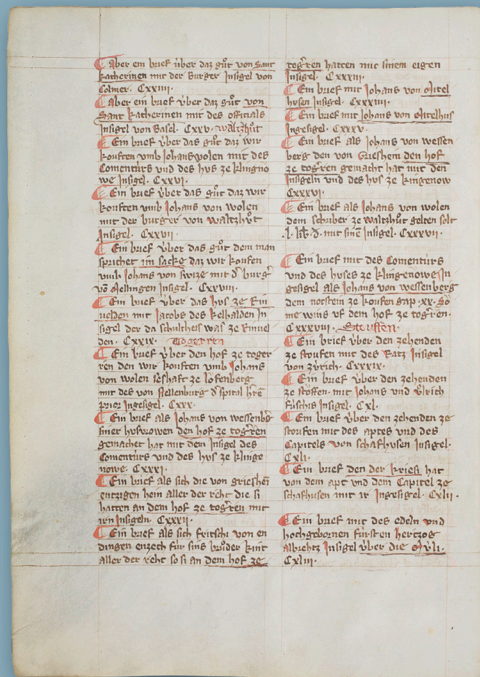 Aber ein brief über daz gůt von Sant
Katherinen mit der Burger Insigel von
Colmer. CXXIIII
Aber ein brief vber daz gůt von
Sant Katherinen mit des officials
Insigel von Basel. CXXV. Waltzhůt
Ein brief vber daz gůt daz wir
kouften vmb Johans wolen mit des
Comenturs vnd des hvs ze klingno
we Insigel. CXXVI.
Ein brief vber das gůt daz wir
kouften vmb Johans von wolen
mit der burger von waltzhůt
Insigel. CXXVII
Ein brief vber das gůt dem man
sprichet im sacke daz wir koufen
vmb Johans von switze mit d' burg'
vō Mellingen Insigel. CXXVIII.
Ein brief vber das hvs ze Rin
uelden mit Jacobs des kelhalden In
sigel der da schultheis was ze Rinuel
den. CXXIX. Togerren
Ein brief vber den hof ze toger
ren den wir kouften vmb Johans
von wolen seshaft ze lofenberg
mit des von stellenburg
prior Ingesigel. CXXX.
Ein brief als Johans von wessenbg
siner husvrowen den hof ze togren
gemachet hat mit dem Insigel des
Comenturs vnd des hvs ze klinge
nowe. CXXXI.
Ein brief als sich die von griesheī
entzigen hein aller der reht die si
hatten an dem hof ze togren mit
irn Insigeln. CXXXII.
Ein brief als sich fritschi von en
dingen enzech für sins brůder kint
aller der reht so si an dem hof ze
togren hatten mit sinem eigen
Insigel. CXXXIII.
Ein brief mit Johans von Mitel
husen Insigel. CXXXIIII.
Ein brief mit Johans von Mitelhus
Ingesigel. CXXXV.
Ein brief als Johans von wessen
berg den von Griesheim den hof
ze togren gemacht hat mit den
Insigeln vnd des hvs ze klingenow
CXXXVI.
Ein brief als Johans von wolen
dem schriber ze waltzhůt gelten solt
mit sinē Insigel. CXXXVII.
Ein brief mit des Comenturs
vnd des huses ze klingenowe In
gesigel als Johans von wessenberg
dem ze koufen gap. XX. So
me wins vf dem hof ze togren.
CXXXVIII. Stoufen.
Ein brief über den zehenden
ze stoufen mit des Ratz Insigel
von zürich. CXXXIX.
Ein brief über den zehenden
ze stoffen. mit Johans vnd Vlrich
fütschis Insigel. CXL.
Ein brief über den zehenden ze
stoufen mit des aptes vnd des
Capitels von schafhusen Insigel.
CXLI.
Ein brief den der kriesi hat
von dem apt vnd dem Capitel ze
schafhusen mit ir Ingesigel. CXLII.
Ein brief mit des edeln vnd
hochgebornen fürsten hertzog
albrehtz Insigel über die Müli.
CXLIII.